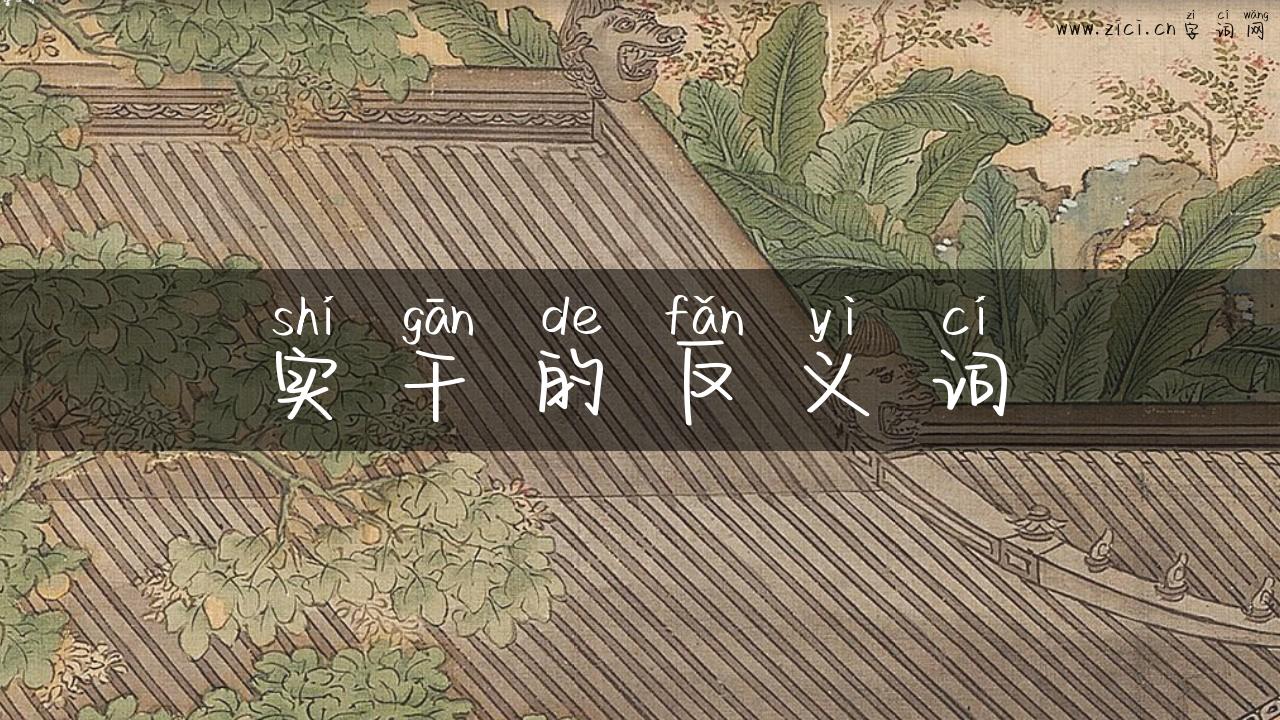 zì cí wǎng
www.zici.cn 字词网
shí gān de fǎn yì cí
实干的反义词